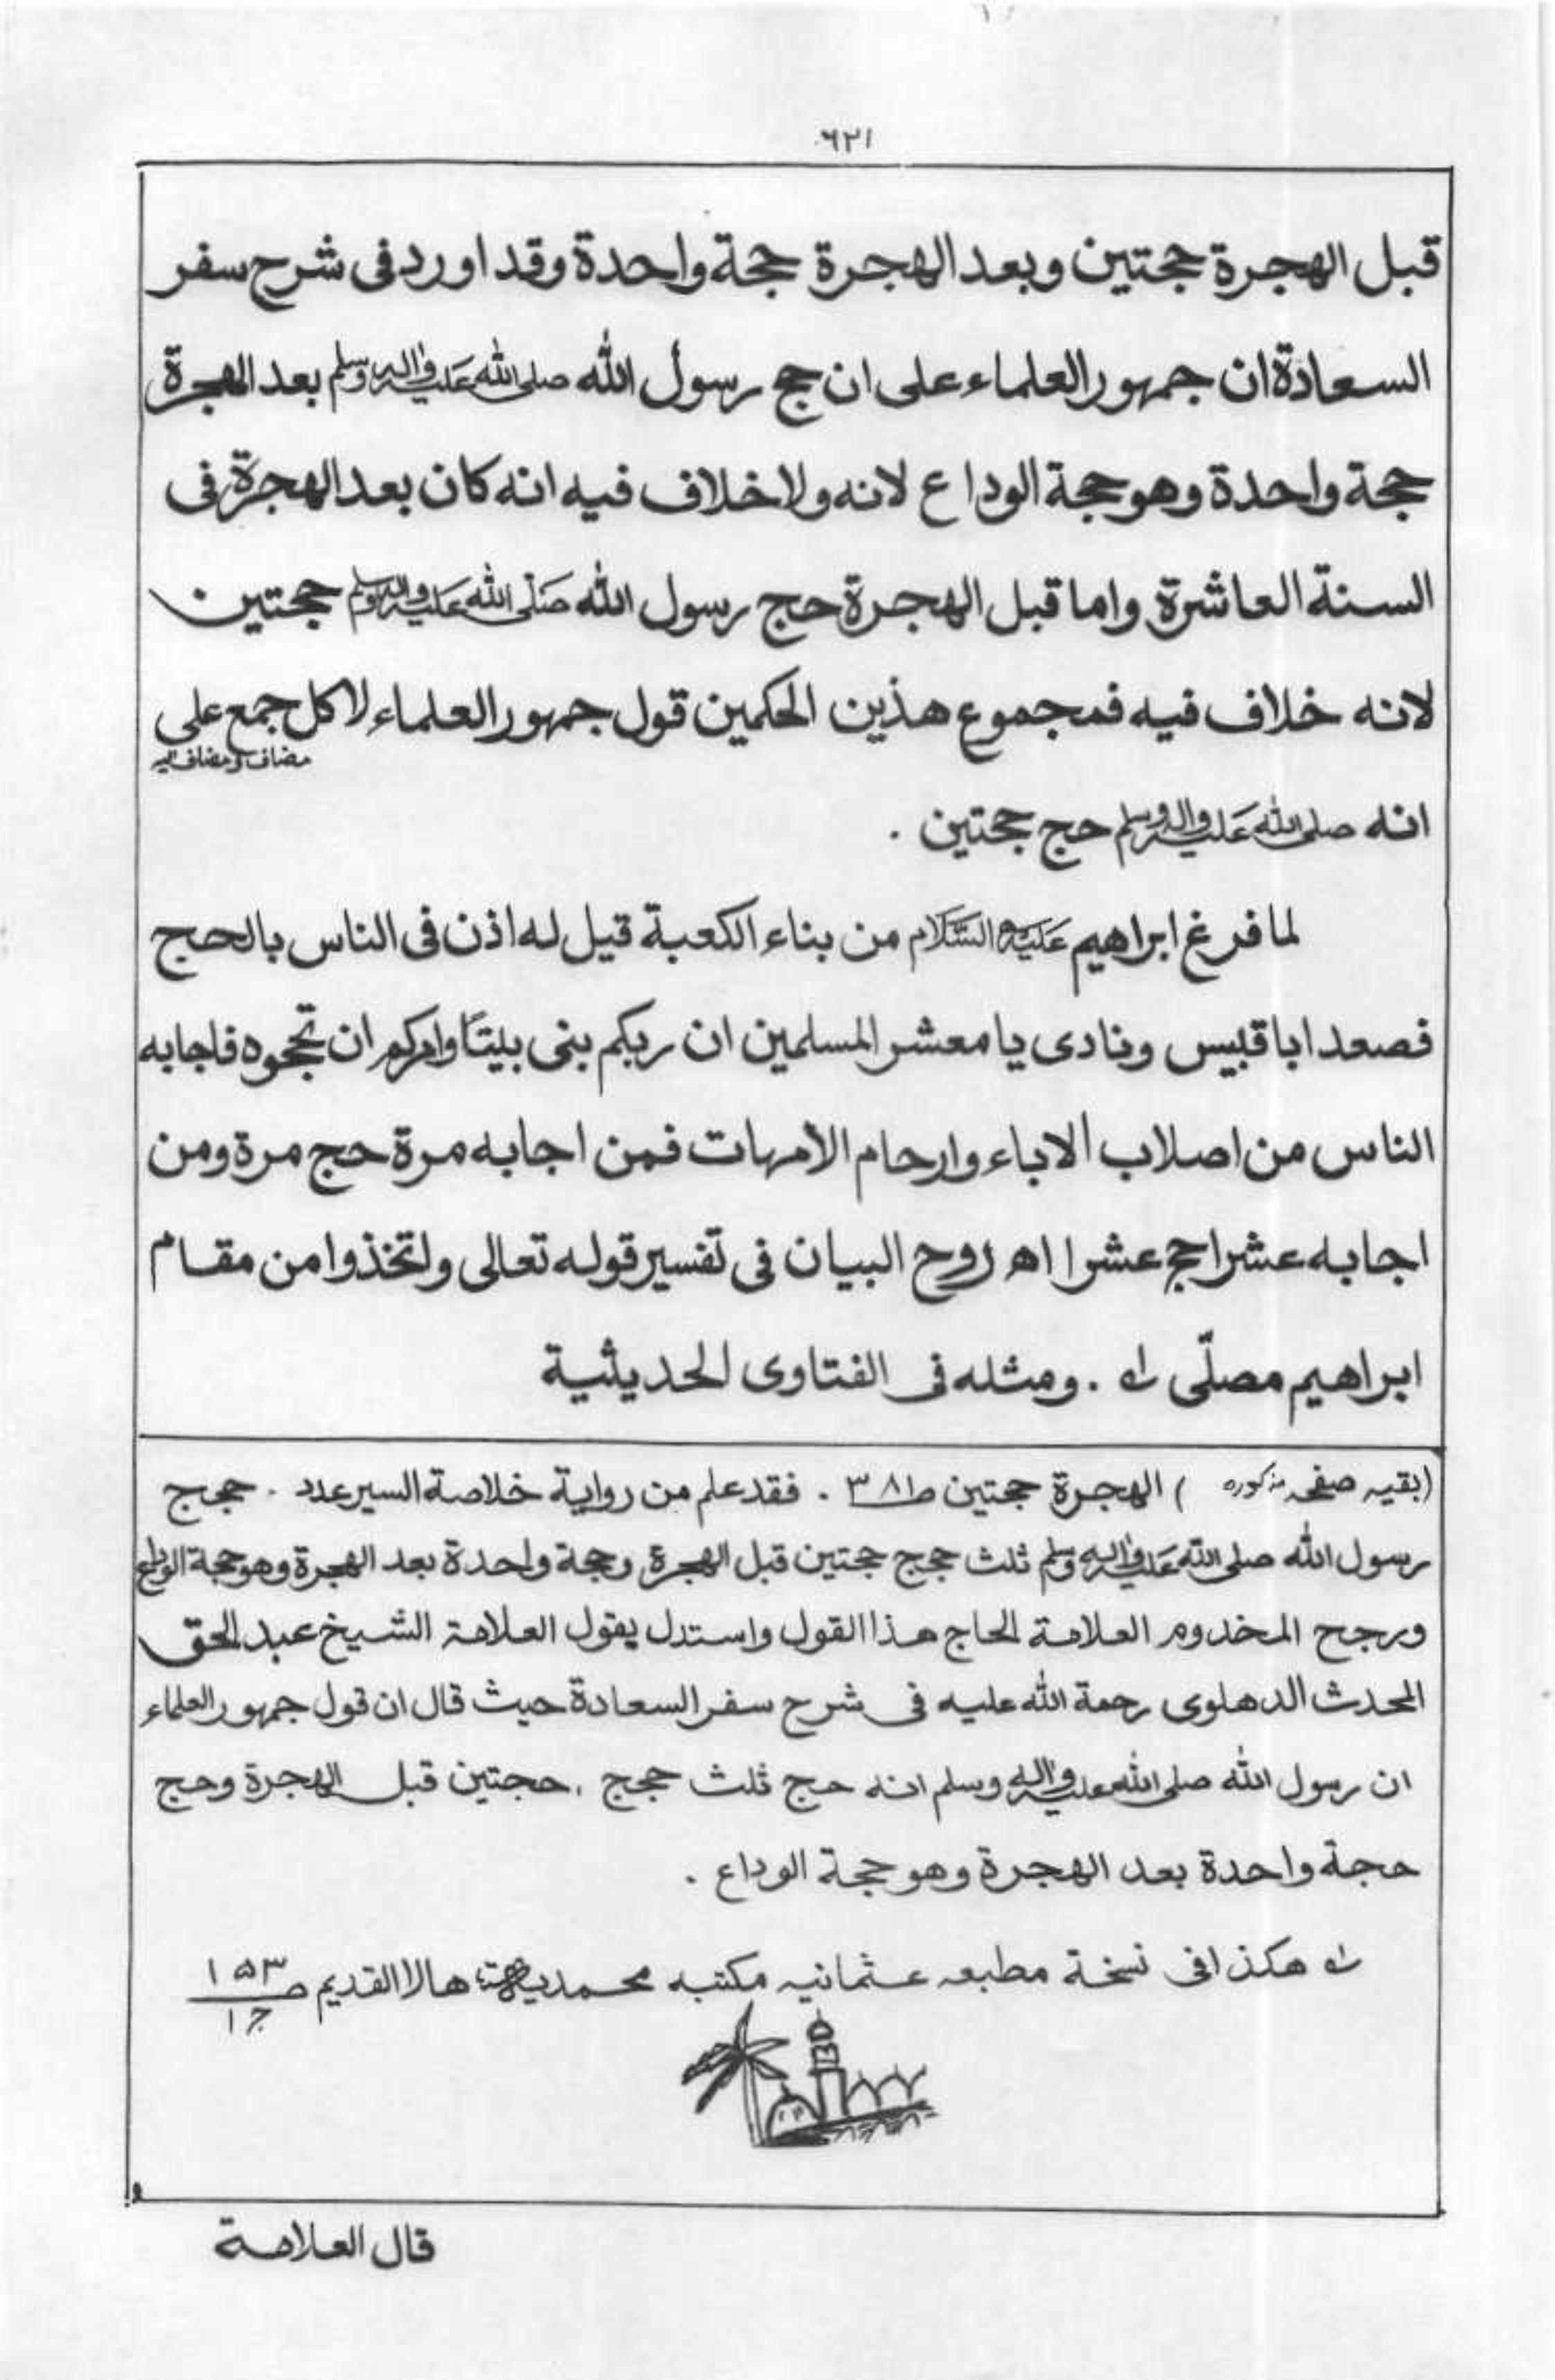 ٦٢١
قبل الهجرة حجتين وبعد الهجرة حجة واحدة وقد اورد فى شرح سفر
السعادة ان جمهور العلماء على ان حج رسول الله صلى الله عليه واله وسلم بعد الهجرة
حجة واحدة وهو حجة الوداع لانه ولا خلاف فيه انه كان بعد الهجرة فى
السنة العاشرة واما قبل الهجرة حج رسول الله صَلّى الله عَليه واله وسلم حجتين
لانه خلاف فيه فمجموع هذين الحكمين قول جمهور العلماء لا كل جمع على
مضاف ومضاف اليه
انه صلى الله عَليه واله وسلم حج حجتين .
لما فرغ ابراهيم عَليْه السَّلَام من بناء الكعبة قيل له اذن فى الناس بالحج
فصعد ابا قبيس ونادى يا معشر المسلمين ان ربكم بنى بيتًا وامركم ان تحجوه فاجابه
الناس من اصلاب الاباء وارحام الأمهات فمن اجابه مرة حج مرة ومن
اجابه عشرا حج عشرا اه روح البيان فى تفسير قوله تعالى واتخذوا من مقام
ابراهيم مصلّى له . ومثله فى الفتاوى الحديثية
(بقيه صفحه مذكوره ) الهجرة حجتين ص٣٨١ . فقد علم من رواية خلاصة السير عدد . حجج
رسول الله صلى الله عَليه واله وسلم ثلث حجج حجتين قبل الهجرة وحجة واحدة بعد الهجرة وهو حجة الوداع
ورجح المخدوم العلامة الحاج هذا القول واستدل بقول العلامة الشيخ عبد الحق
المحدث الدهلوى رحمة الله عليه فى شرح سفر السعادة حيث قال ان قول جمهور العلماء
ان رسول الله صلى الله عليه واله وسلم انه حج ثلث حجج . حجتين قبل الهجرة وحج
حجة واحدة بعد الهجرة وهو حجة الوداع .
له هكذا فى نسخة مطبعه عثمانيه مكتبه محمديه هالا القديم ص ١٥٣
ج ١
قال العلامة